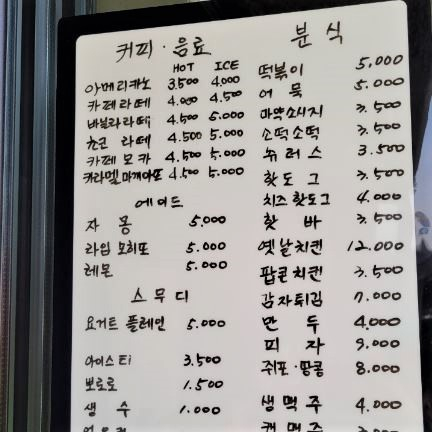 커피·음료
HOT ICE
아메리카노 3.500 4.000
카페라떼 4.000 4.500
바닐라라떼 4.500 5.000
초코 라떼 4.500 5.000
카페모카 4.500 5.000
카라멜마끼아또 4.500 5.000
에이드
자몽 5.000
라임모히또 5.000
레몬 5.000
스무디
요거트 플레인 5.000
아이스티 3.500
뽀로로 1.500
생수 1.000
분식
떡볶이 5.000
어묵 5.000
마약소시지 3.500
소떡소떡 3.500
츄러스 3.500
핫도그 3.500
치즈핫도그 4.000
핫바 3.500
옛날치킨 12.000
팝콘치킨 3.500
감자튀김 7.000
만두 4.000
피자 9.000
쥐포·땅콩 8.000
생맥주 4.000
캔맥주